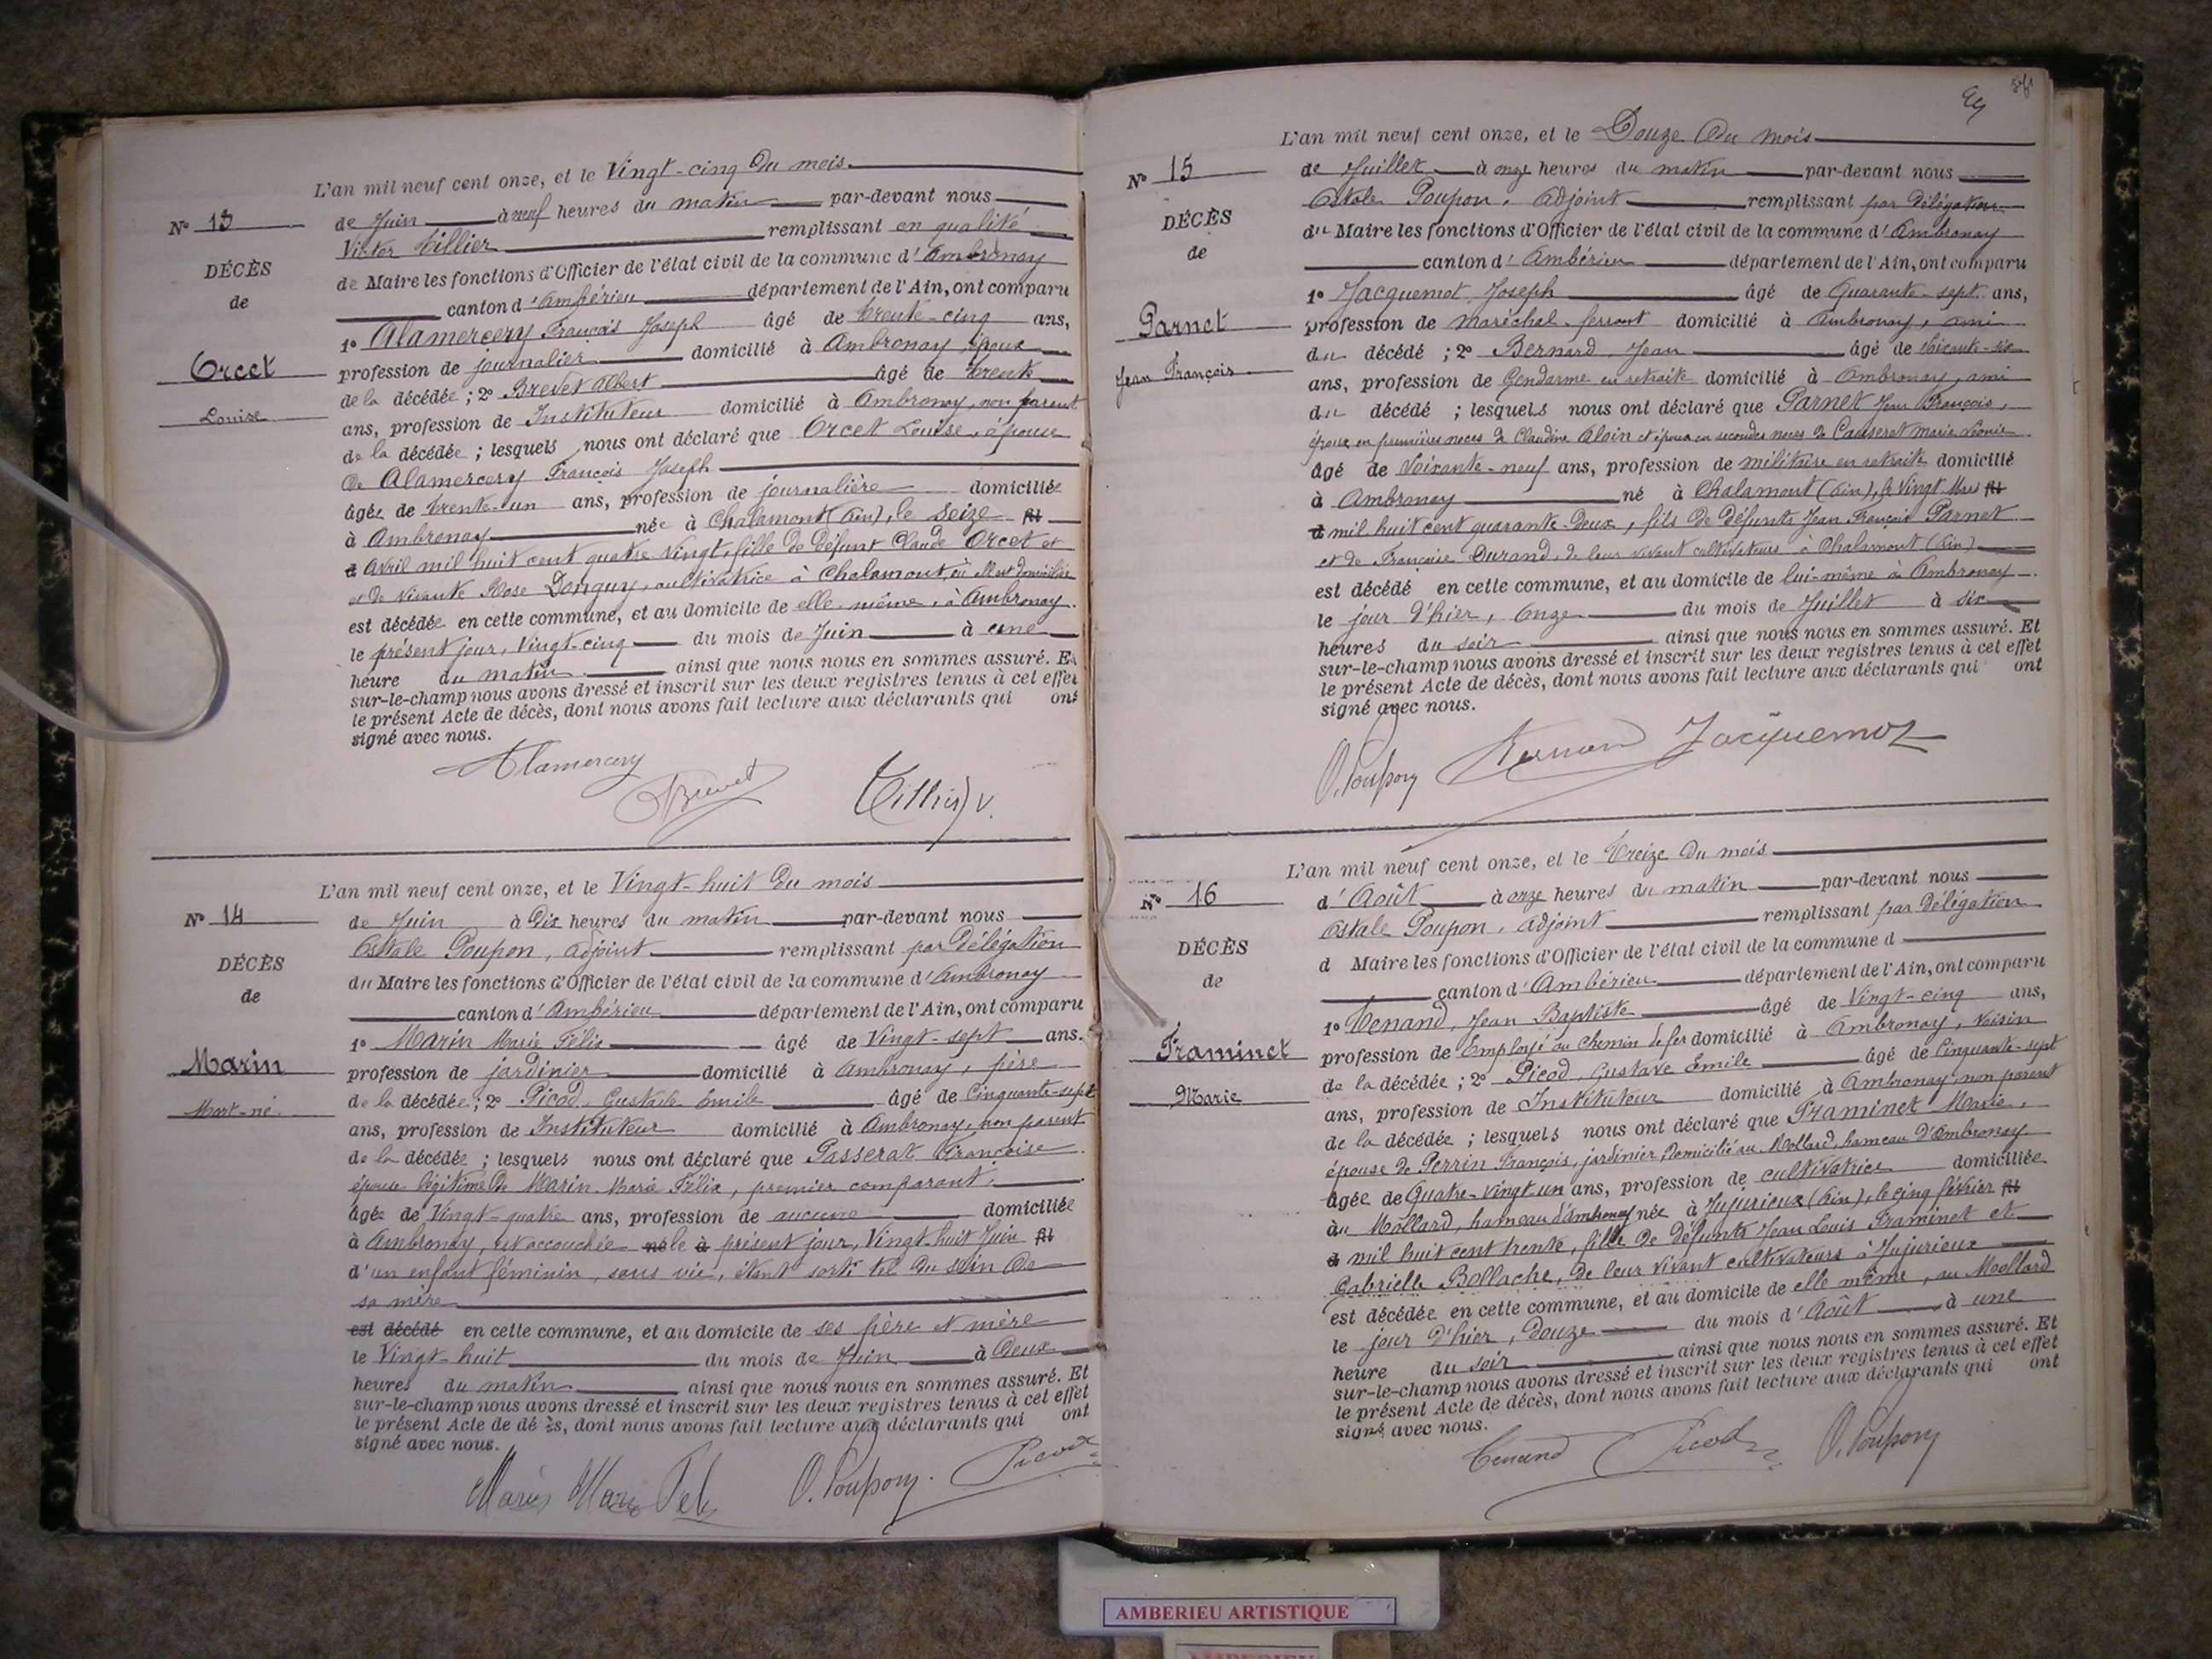 L'an mil neuf cent onze, et le Vingt-cinq du mois
N° 13
de Juin à neuf heures du matin par-devant nous
Victor Tillier remplissant en qualité
DÉCÈS
de Maire les fonctions d'Officier de l'état civil de la commune d'Ambronay
de
canton d'Ambérieu département de l'Ain, ont comparu
1° Alamercery François Joseph âgé de trente-cinq ans,
Orcet
profession de journalier domicilié à Ambronay, époux
de la décédée ; 2° Brevet Albert âgé de trente
Louise
ans, profession de Instituteur domicilié à Ambronay, non parent
de la décédée ; lesquels nous ont déclaré que Orcet Louise, épouse
de Alamercery François Joseph
âgée de trente-un ans, profession de journalière domiciliée
à Ambronay née à Chalamont (Ain), le seize fil
d avril mil huit cent quatre vingt, fille de défunt Claude Orcet et
et de vivante Rose Donguy, cultivatrice à Chalamont, où elle est domiciliée
est décédée en cette commune, et au domicile de elle-même, à Ambronay.
le présent jour, Vingt-cinq du mois de Juin à une
heure du matin ainsi que nous nous en sommes assuré. Et
sur-le-champ nous avons dressé et inscrit sur les deux registres tenus à cet effet
le présent Acte de décès, dont nous avons fait lecture aux déclarants qui ont
signé avec nous.
Alamercery
Brevet Tillier V.
L'an mil neuf cent onze, et le Vingt-huit du mois
N° 14
de Juin à dix heures du matin par-devant nous
Octale Poupon, adjoint remplissant par délégation
DÉCÈS
du Maire les fonctions d'Officier de l'état civil de la commune d'Ambronay
de
canton d'Ambérieu département de l'Ain, ont comparu
1° Marin Marie Félix âgé de Vingt-sept ans.
Marin
profession de jardinier domicilié à Ambronay, père
de la décédée ; 2° Picod, Gustave Emile âgé de Cinquante-sept
Mort-né.
ans, profession de Instituteur domicilié à Ambronay, non parent
de la décédée ; lesquels nous ont déclaré que Passerat Françoise
épouse légitime de Marin Marie Félix, premier comparant,
âgée de Vingt-quatre ans, profession de aucune domiciliée
à Ambronay, est accouchée né le à présent jour, Vingt-huit Juin fil
d'un enfant féminin, sans vie, étant sorti tel du sein de
sa mère
est décédé en cette commune, et au domicile de ses père et mère
le Vingt-huit du mois de Juin à deux
heures du matin ainsi que nous nous en sommes assuré. Et
sur-le-champ nous avons dressé et inscrit sur les deux registres tenus à cet effet
le présent Acte de décès, dont nous avons fait lecture aux déclarants qui ont
signé avec nous.
Marin Marie Felix O. Poupon. Picod
L'an mil neuf cent onze, et le Douze du mois
N° 15
de Juillet à onze heures du matin par-devant nous
Octale Poupon, adjoint remplissant par délégation
DÉCÈS
du Maire les fonctions d'Officier de l'état civil de la commune d'Ambronay
de
canton d'Ambérieu département de l'Ain, ont comparu
1° Jacquemot Joseph âgé de Quarante-sept ans,
Parnet
profession de maréchal-ferrant domicilié à Ambronay, ami
du décédé ; 2° Bernard, Jean âgé de soixante-six
Jean François
ans, profession de Gendarme en retraite domicilié à Ambronay, ami
du décédé ; lesquels nous ont déclaré que Parnet Jean François,
époux en premières noces de Claudine Aloin et époux en secondes noces de Causeret Marie Léonie
âgé de Soixante-neuf ans, profession de militaire en retraite domicilié
à Ambronay né à Chalamont (Ain), le Vingt Mars fil
d mil huit cent quarante-deux, fils de défunts Jean François Parnet
et de Françoise Durand, de leur vivant cultivateurs à Chalamont (Ain)
est décédé en cette commune, et au domicile de lui-même à Ambronay
le jour d'hier, onze du mois de Juillet à six
heures du soir ainsi que nous nous en sommes assuré. Et
sur-le-champ nous avons dressé et inscrit sur les deux registres tenus à cet effet
le présent Acte de décès, dont nous avons fait lecture aux déclarants qui ont
signé avec nous.
O. Poupon Jacquemot
L'an mil neuf cent onze, et le Treize du mois
N° 16
d'Août à onze heures du matin par-devant nous
Octale Poupon, adjoint remplissant par délégation
DÉCÈS
d Maire les fonctions d'Officier de l'état civil de la commune d
de
canton d'Ambérieu département de l'Ain, ont comparu
1° Tenand, Jean Baptiste âgé de Vingt-cinq ans,
Framinet
profession de Employé au chemin de fer domicilié à Ambronay, voisin
de la décédée ; 2° Picod, Gustave Emile âgé de Cinquante-sept
Marie
ans, profession de Instituteur domicilié à Ambronay non parent
de la décédée ; lesquels nous ont déclaré que Framinet Marie,
épouse de Perrin François, jardinier, domicilié au Mollard, hameau d'Ambronay
âgée de Quatre-vingt un ans, profession de cultivatrice domiciliée
au Mollard, hameau d'Ambronay née à Jujurieux (Ain), le cinq février fil
d mil huit cent trente, fille de défunts Jean Louis Framinet et
Gabrielle Bollache, de leur vivant cultivateurs à Jujurieux
est décédée en cette commune, et au domicile de elle même, au Mollard
le jour d'hier, douze du mois d'Août à une
heure du soir ainsi que nous nous en sommes assuré. Et
sur-le-champ nous avons dressé et inscrit sur les deux registres tenus à cet effet
le présent Acte de décès, dont nous avons fait lecture aux déclarants qui ont
signé avec nous.
Tenand Picod O. Poupon
AMBERIEU ARTISTIQUE
AMBERIEU